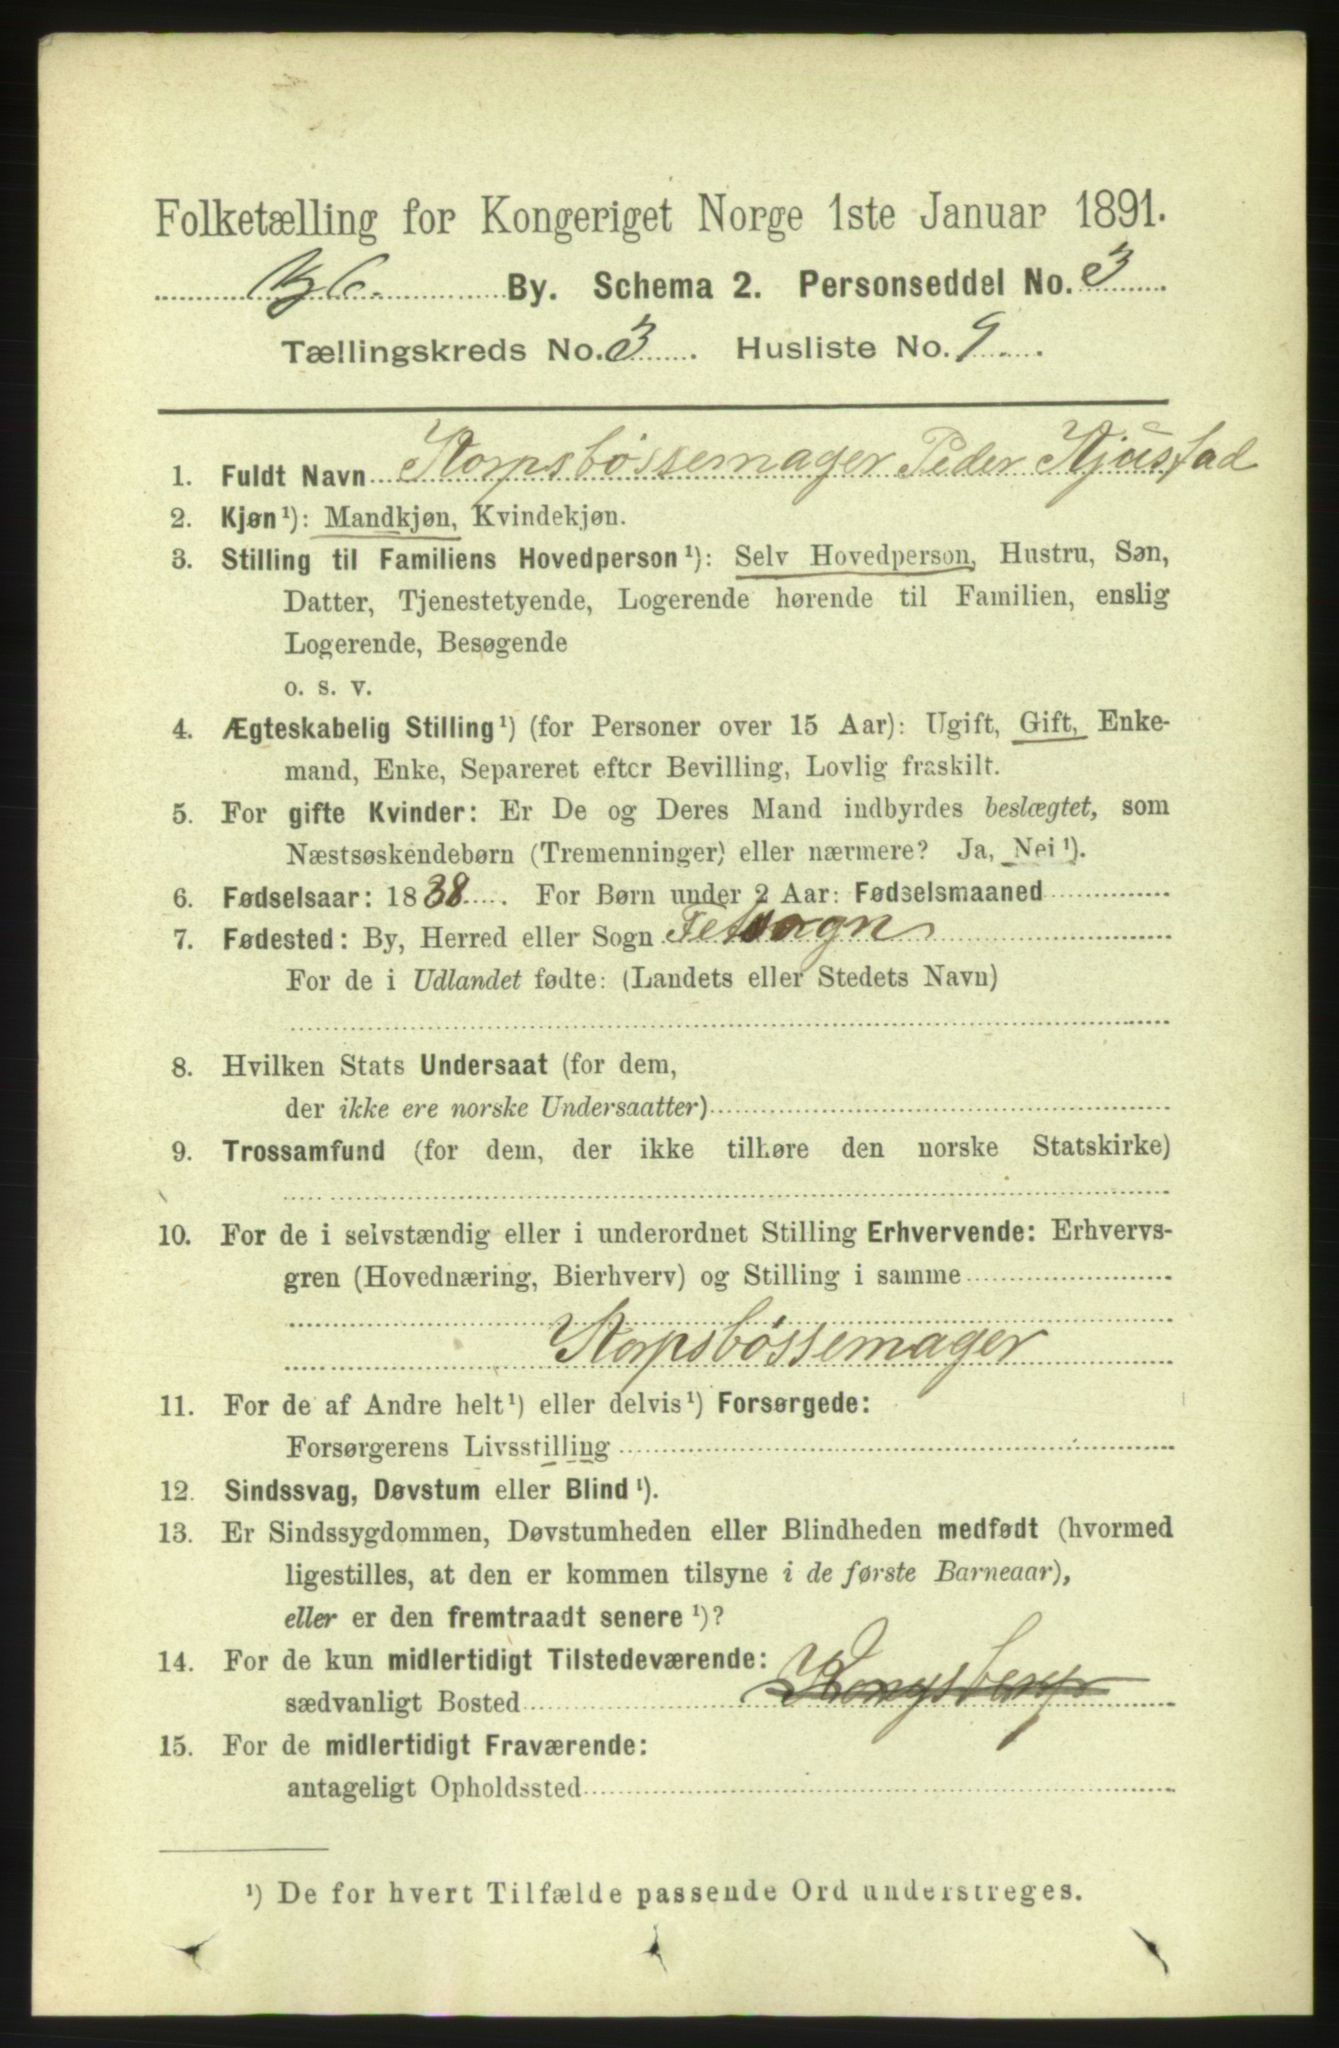 Folketælling for Kongeriget Norge 1ste Januar 1891.
By. Schema 2. Personseddel No. 3
Tællingskreds No. 3. Husliste No. 9
1. Fuldt Navn Korpsbössemager Peder Kjustad
2. Kjøn¹): Mandkjøn, Kvindekjøn.
3. Stilling til Familiens Hovedperson¹): Selv Hovedperson, Hustru, Søn,
Datter, Tjenestetyende, Logerende hørende til Familien, enslig
Logerende, Besøgende
o. s. v.
4. Ægteskabelig Stilling¹) (for Personer over 15 Aar): Ugift, Gift, Enke-
mand, Enke, Separeret efter Bevilling, Lovlig fraskilt.
5. For gifte Kvinder: Er De og Deres Mand indbyrdes beslægtet, som
Næstsøskendebørn (Tremenninger) eller nærmere? Ja, Nei¹).
6. Fødselsaar: 1838. For Børn under 2 Aar: Fødselsmaaned
7. Fødested: By, Herred eller Sogn Fetsogn
For de i Udlandet fødte: (Landets eller Stedets Navn)
8. Hvilken Stats Undersaat (for dem,
der ikke ere norske Undersaatter)
9. Trossamfund (for dem, der ikke tilhøre den norske Statskirke)
10. For de i selvstændig eller i underordnet Stilling Erhvervende: Erhvervs-
gren (Hovednæring, Bierhverv) og Stilling i samme
Korpsbössemager
11. For de af Andre helt¹) eller delvis¹) Forsørgede:
Forsørgerens Livsstilling
12. Sindssvag, Døvstum eller Blind¹).
13. Er Sindssygdommen, Døvstumheden eller Blindheden medfødt (hvormed
ligestilles, at den er kommen tilsyne i de første Barneaar),
eller er den fremtraadt senere¹)?
14. For de kun midlertidigt Tilstedeværende:
sædvanligt Bosted Kongsberg
15. For de midlertidigt Fraværende:
antageligt Opholdssted
¹) De for hvert Tilfælde passende Ord understreges.